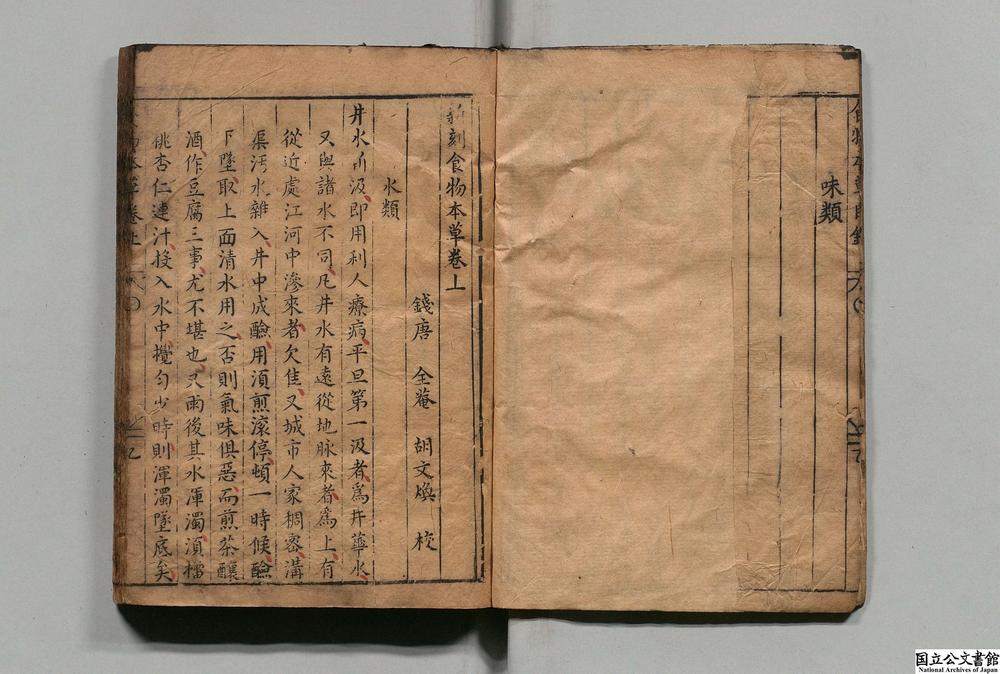 味類
新刻食物本草卷上
錢唐 全菴 胡文煥 校
水類
井水新汲即用利人療病平旦第一汲者爲井華水
又與諸水不同凡井水有遠從地脉來者爲上有
從近處江河中滲來者欠佳又城市人家稠密溝
渠汚水雜入井中成鹼用湏煎滚停頓一時候鹼
下墜取上面清水用之否則氣味俱惡而煎茶釀
酒作豆腐三事尤不堪也又雨後其水渾濁湏擂
桃杏仁連汁投入水中攪勻少時則渾濁墜底矣
国立公文書館
National Archives of Japan